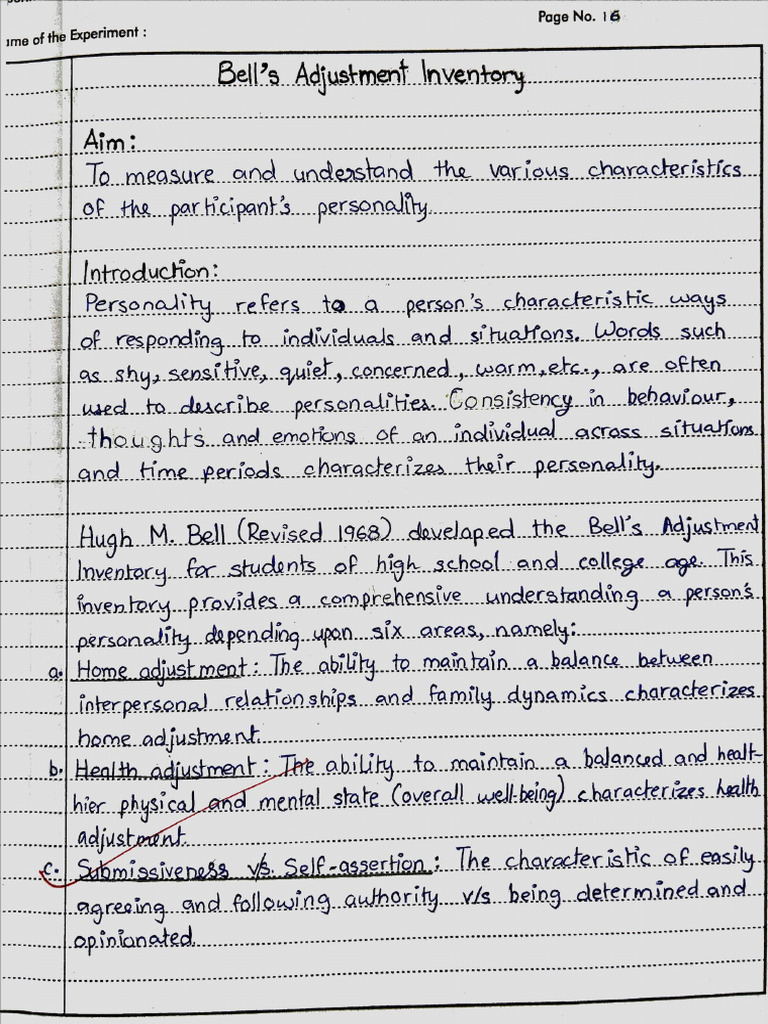 Page No. 16
ame of the Experiment :
Bell's Adjustment Inventory
Aim:
To measure and understand the various characteristics
of the participant's personality.
Introduction:
Personality refers to a person's characteristic ways
of responding to individuals and situations. Words such
as shy, sensitive, quiet, concerned, warm, etc., are often
used to describe personalities. Consistency in behaviour,
thoughts and emotions of an individual across situations
and time periods characterizes their personality.
Hugh M. Bell (Revised 1968) developed the Bell's Adjustment
Inventory for students of high school and college age. This
inventory provides a comprehensive understanding a person's
personality depending upon six areas, namely:
a. Home adjustment: The ability to maintain a balance between
interpersonal relationships and family dynamics characterizes
home adjustment.
b. Health adjustment: The ability to maintain a balanced and healt-
hier physical and mental state (overall well-being) characterizes health
adjustment.
c. Submissiveness v/s. Self-assertion: The characteristic of easily
agreeing and following authority v/s being determined and
opinionated.